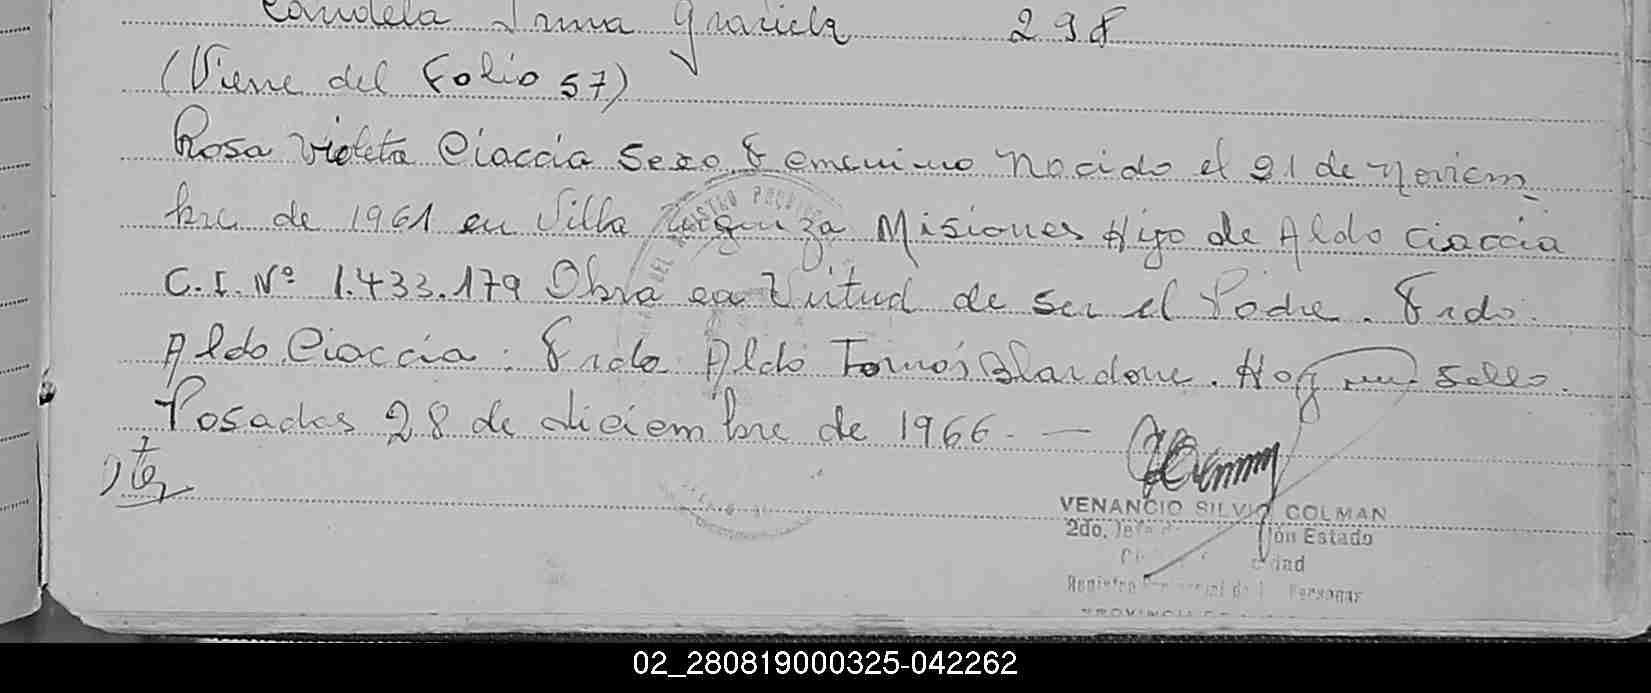 Candela Irma Graciela 298
(Viene del Folio 57)
Rosa Violeta Ciaccia Sexo Femenino Nacido el 21 de Noviem
bre de 1961 en Villa Urquiza Misiones Hijo de Aldo Ciaccia
C.I. Nº 1.433.179 Obra en Virtud de ser el Padre. Frdo.
Aldo Ciaccia. Frdo Aldo Tomás Blardone. Hay un Sello.
Posadas 28 de diciembre de 1966. —
VENANCIO SILVIO COLMAN
2do. Jefe ón Estado
dad
Registro Provincial de l Personas
PROVINCIA DE
02_280819000325-042262